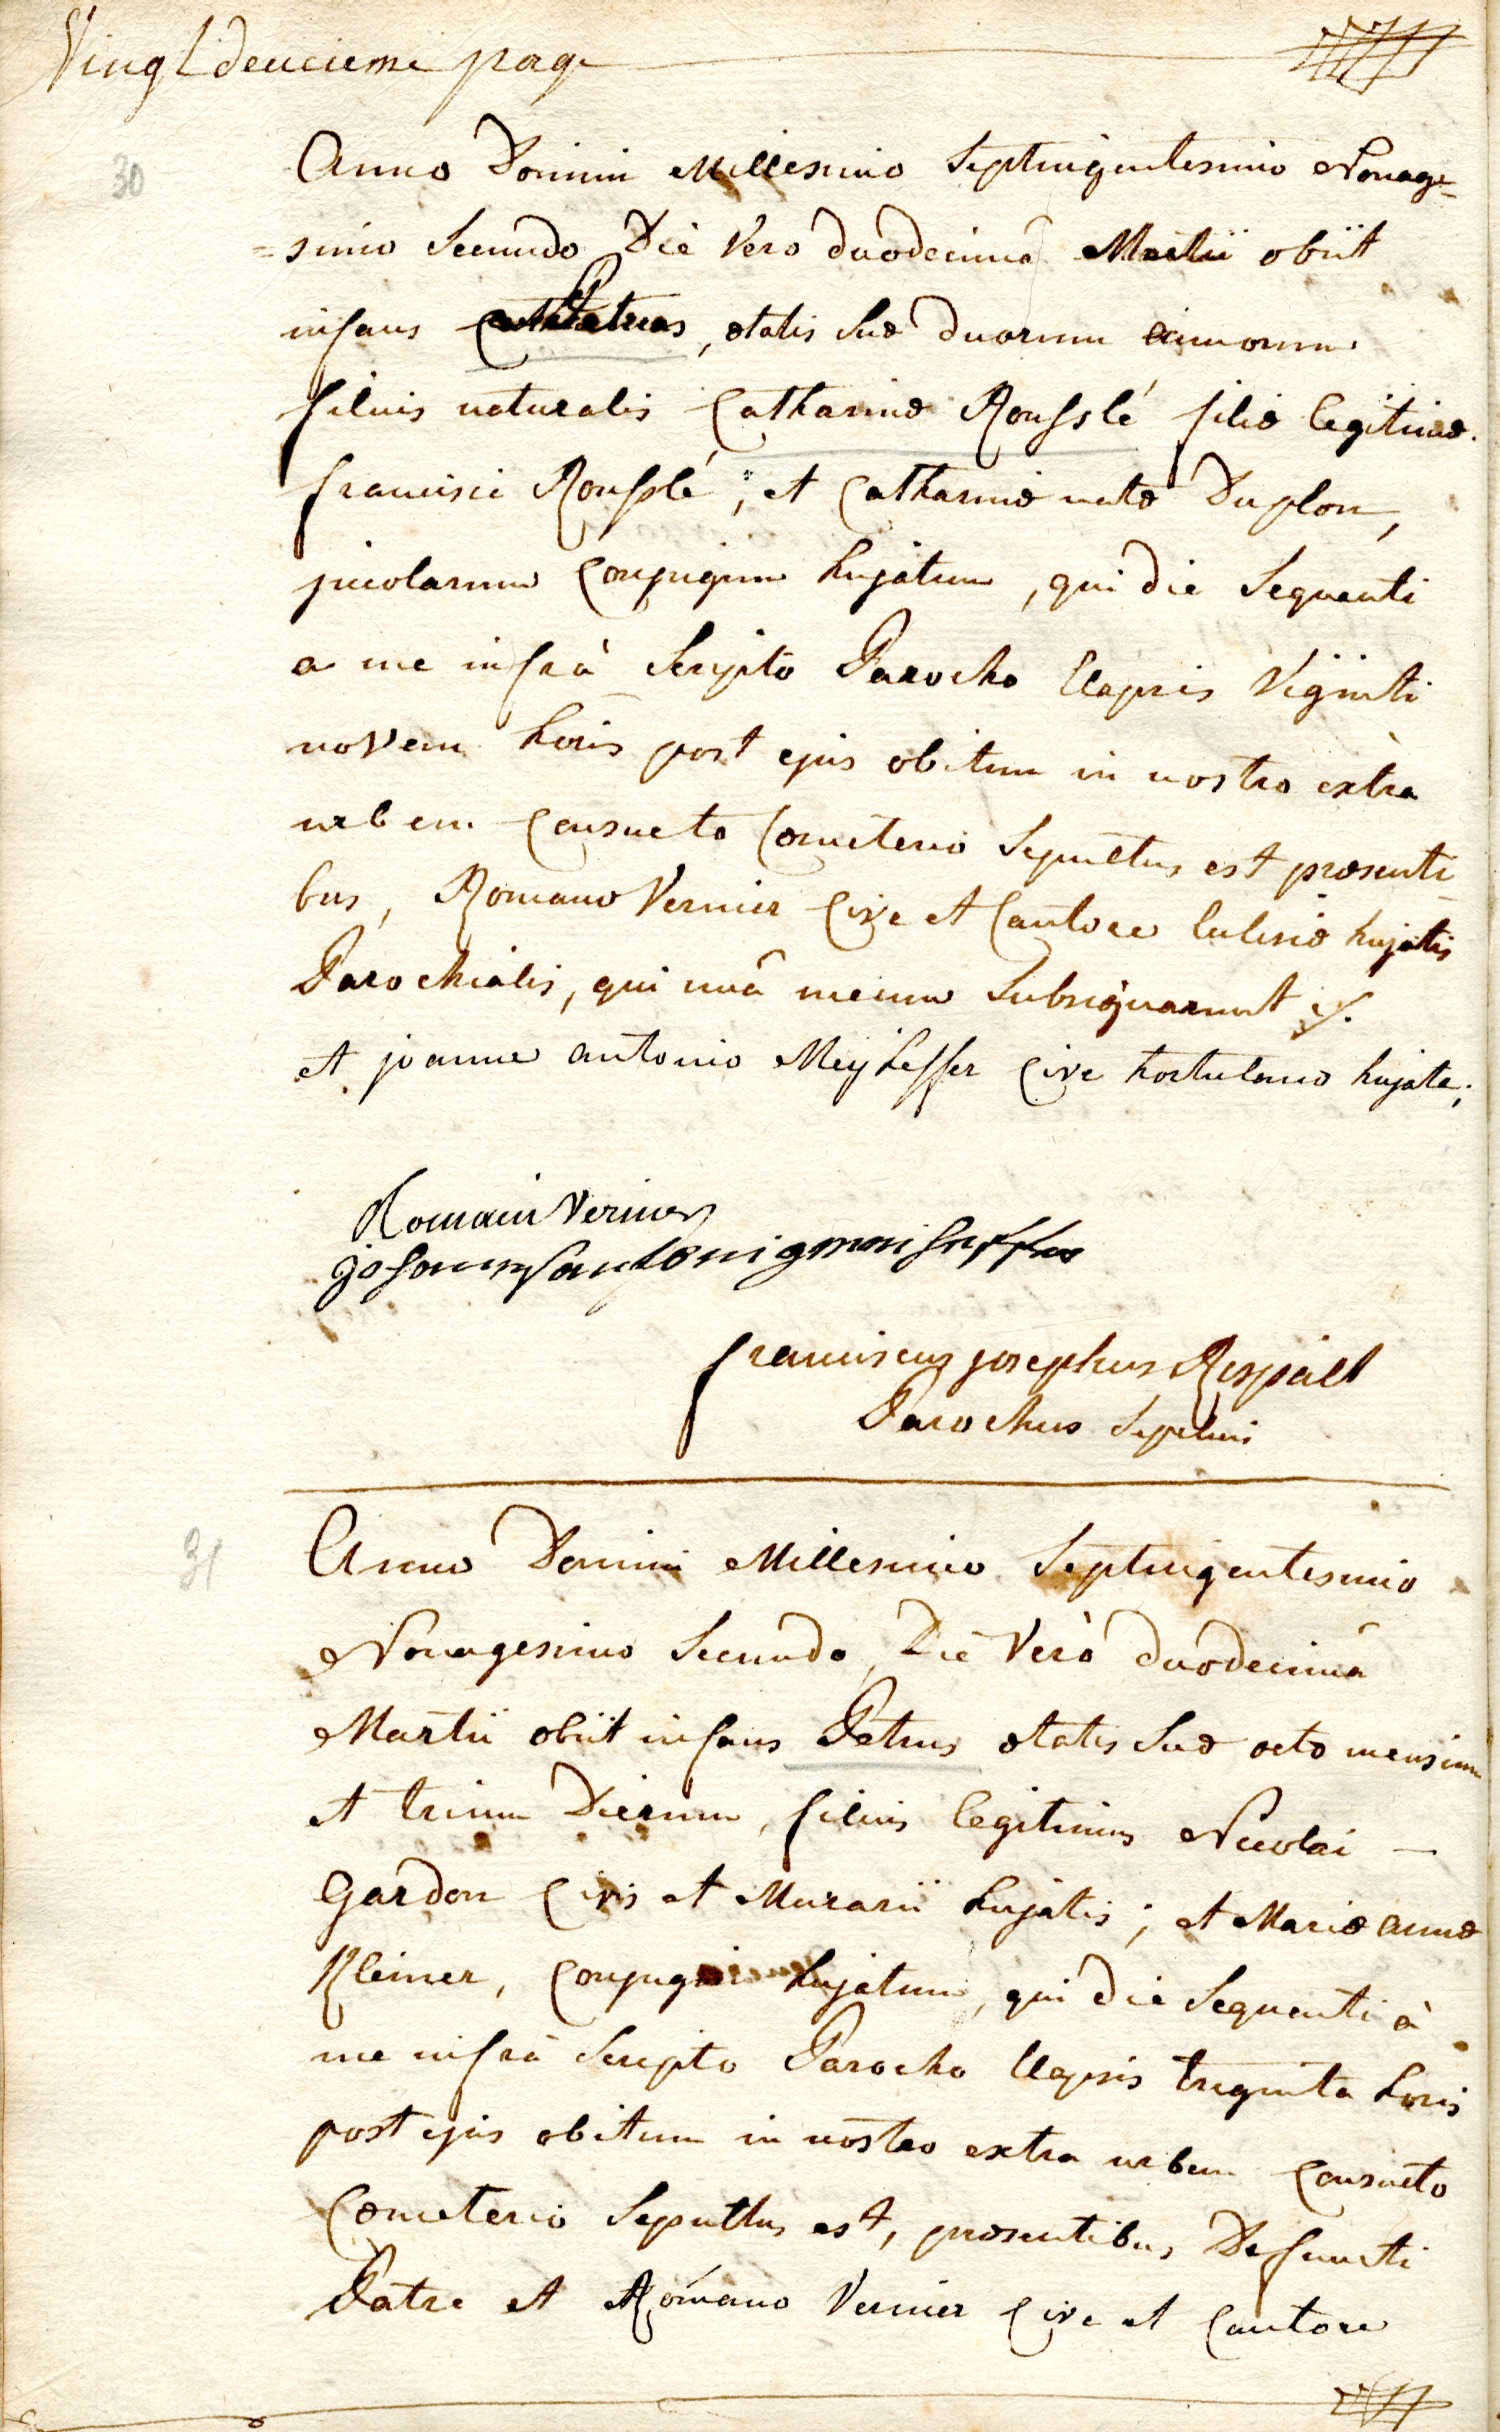 Vingt deucieme page
30
Anno Domini Millesimo Septuigentesimo Nonage=
=simo Secundo Die Vero duodecimâ Martii obiit
infans , ætatis suæ duorum annorum
filius naturalis Catharinæ Rousslé filiæ legitimæ
francisci Rousslé, et Catharinæ natæ Duplon,
jncolarum Conjugum hujatum, qui die Sequenti
a me infrà Scripto Parocho Elapsis Viginti
novem horis post ejus obitum in nostro extrà
urbem Consueto Cometerio Sepultus est præsenti
bus, Romano Vernier Cive et Cantore Eclesiæ hujatis
Parochialis, qui unâ mecum Subsignarunt
et joanne antonio Meyheffer Cive hortulano hujate;
Romain Vernier
franciscus josephus Respält
Parochus Sepelivi
31
Anno Domini Millesimo Septuigentesimo
Nonagesimo Secundo Die Verò duodecimâ
Martii obiit infans Petrus ætatis Suæ octo mensium
et trium Dierum, filius legitimus Nicolai –
Gardon Civis et Murarii hujatis; et Mariæ annæ
Kleiner, hujatum, qui die Sequenti à
me infrà Scripto Parocho Elapsis triginta horis
post ejus obitum in nostro extra urbem Consueto
Cometerio Sepultus est, præsentibus Defuncti
Patre et Romano Vernier Cive et Cantore